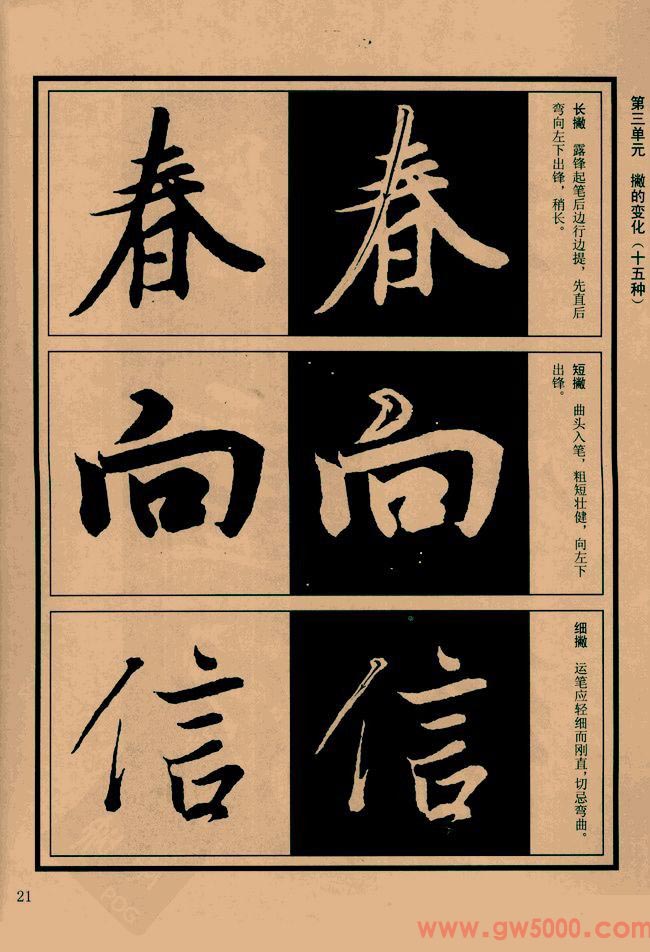 第三单元　撇的变化（十五种）
长撇　露锋起笔后边行边提，先直后
弯向左下出锋，稍长。
春 春
短撇　曲头入笔，粗短壮健，向左下
出锋。
向 向
细撇　运笔应轻细而刚直，切忌弯曲。
信 信
21
www.gw5000.com